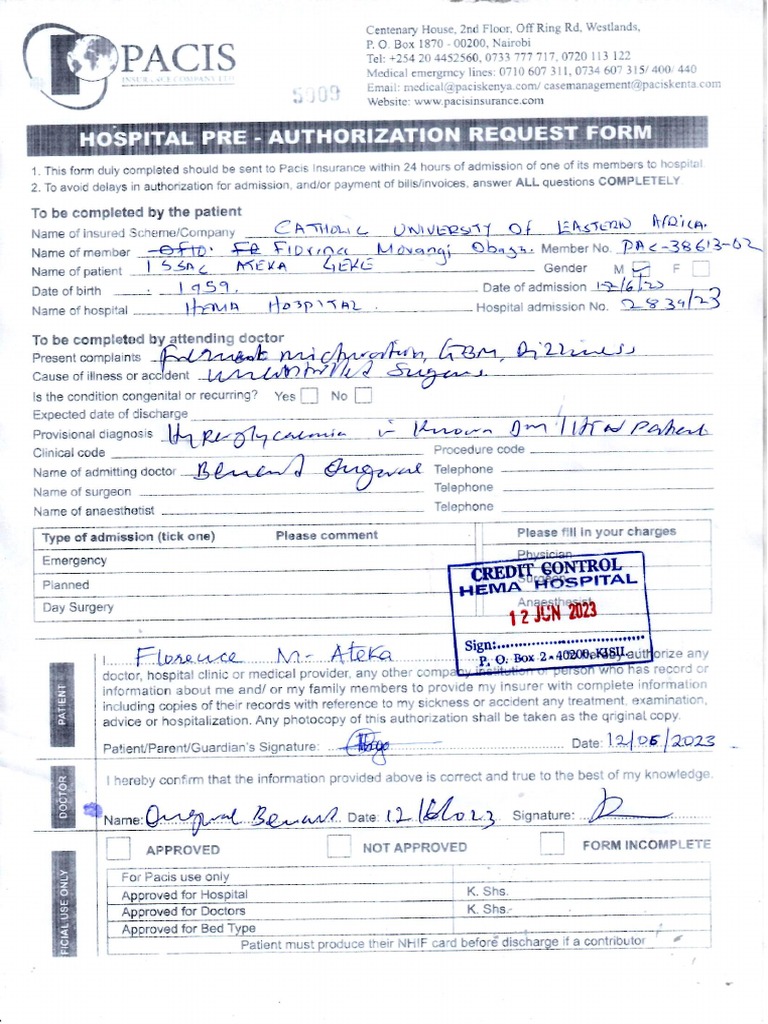 PACIS
INSURANCE COMPANY LTD
Centenary House, 2nd Floor, Off Ring Rd, Westlands,
P. O. Box 1870 - 00200, Nairobi
Tel: +254 20 4452560, 0733 777 717, 0720 113 122
Medical emergncy lines: 0710 607 311, 0734 607 315/ 400/ 440
Email: medical@paciskenya.com/ casemanagement@paciskenta.com
Website: www.pacisinsurance.com
5009
HOSPITAL PRE - AUTHORIZATION REQUEST FORM
1. This form duly completed should be sent to Pacis Insurance within 24 hours of admission of one of its members to hospital.
2. To avoid delays in authorization for admission, and/or payment of bills/invoices, answer ALL questions COMPLETELY
To be completed by the patient
Name of insured Scheme/Company CATHOLIC UNIVERSITY OF EASTERN AFRICA.
Name of member Morangi Obaga Member No. PAC-38613-02
Name of patient ISSAC ATEKA GEKE Gender M F
Date of birth 1959. Date of admission 12/6/23
Name of hospital HEMA HOSPITAL Hospital admission No. 2834/23
To be completed by attending doctor
Present complaints micturation, GBM, Dizziness
Cause of illness or accident uncontrolled Sugars
Is the condition congenital or recurring? Yes No
Expected date of discharge
Provisional diagnosis Hyperglycaemia in Known Dm/HTN patient
Clinical code Procedure code
Name of admitting doctor Telephone
Name of surgeon Telephone
Name of anaesthetist Telephone
Type of admission (tick one) Please comment Please fill in your charges
Emergency Physician
Planned Surgeon
Day Surgery Anaesthesist
CREDIT CONTROL
HEMA HOSPITAL
12 JUN 2023
Sign:
P. O. Box 2 - 40200, KISII.
PATIENT
I Florence M. Ateka hereby authorize any
doctor, hospital clinic or medical provider, any other company institution or person who has record or
information about me and/ or my family members to provide my insurer with complete information
including copies of their records with reference to my sickness or accident any treatment, examination,
advice or hospitalization. Any photocopy of this authorization shall be taken as the original copy.
Patient/Parent/Guardian's Signature: Date: 12/06/2023
DOCTOR
I hereby confirm that the information provided above is correct and true to the best of my knowledge.
Name: Date: 12/6/2023 Signature:
FICIAL USE ONLY
APPROVED NOT APPROVED FORM INCOMPLETE
For Pacis use only
Approved for Hospital K. Shs.
Approved for Doctors K. Shs.
Approved for Bed Type
Patient must produce their NHIF card before discharge if a contributor